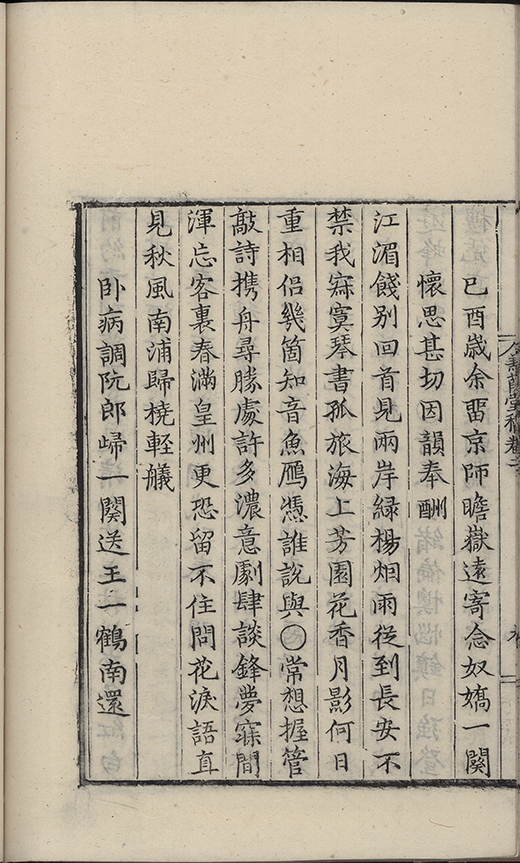 己酉歲余畱京師瞻嶽遠寄念奴嬌一闋
懷思甚切因韻奉酬
江湄餞別回首見兩岸綠楊烟雨從到長安不
禁我寂寞琴書孤旅海上芳園花香月影何日
重相侶幾箇知音魚鴈憑誰說與○常想握管
敲詩携舟尋勝處許多濃意劇肆談鋒夢寐間
渾忘客裏春滿皇州更恐留不住問花淚語直
見秋風南浦歸橈輕艤
卧病調阮郎歸一闋送王一鶴南還